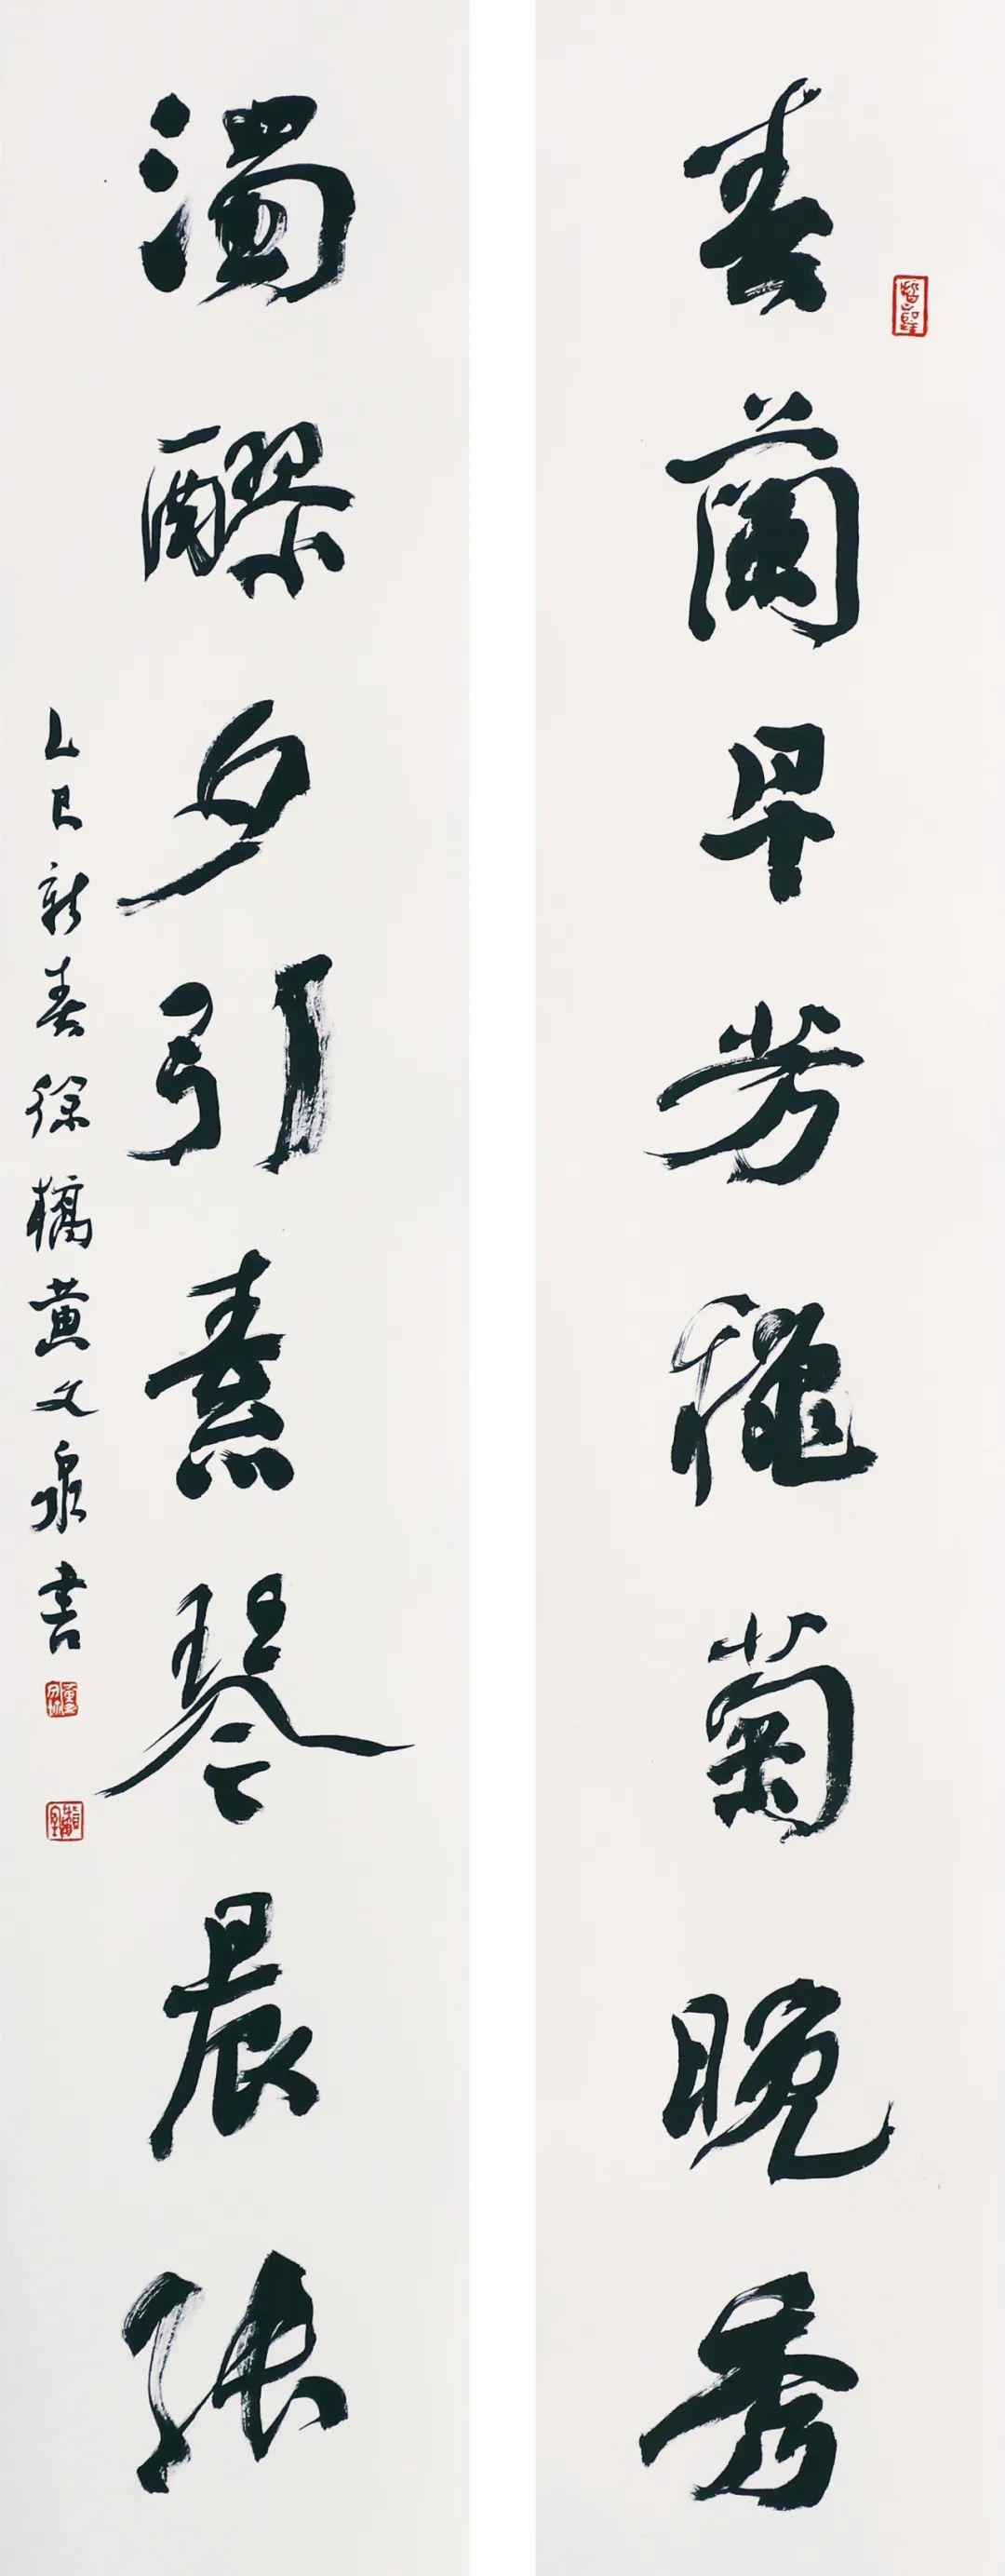 春蘭早芳穐菊晚秀
濁醪夕引素琴晨張
乙巳新春徐橋黄文泉書